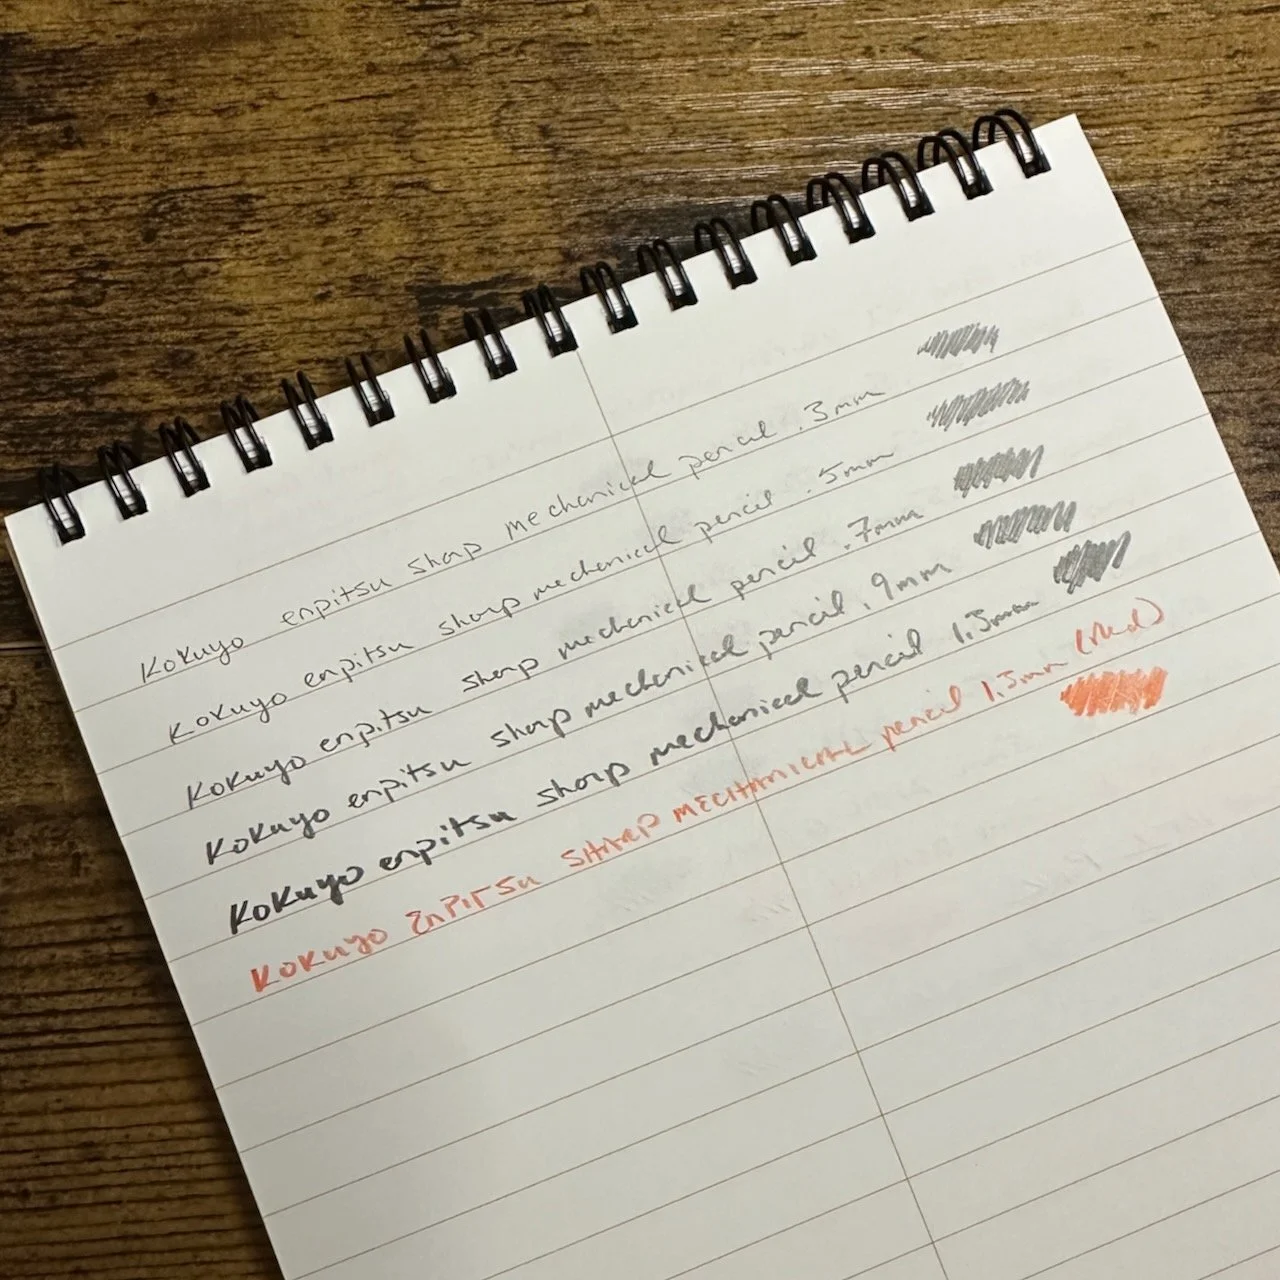 Kokuyo enpitsu sharp mechanical pencil .3mm
Kokuyo enpitsu sharp mechanical pencil .5mm
Kokuyo enpitsu sharp mechanical pencil .7mm
Kokuyo enpitsu sharp mechanical pencil .9mm
Kokuyo enpitsu sharp mechanical pencil 1.3mm
Kokuyo Enpitsu SHARP MECHANICAL pencil 1.3mm (Red)